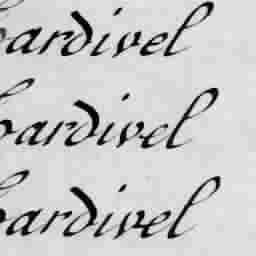 hardivel
hardivel
hardivel